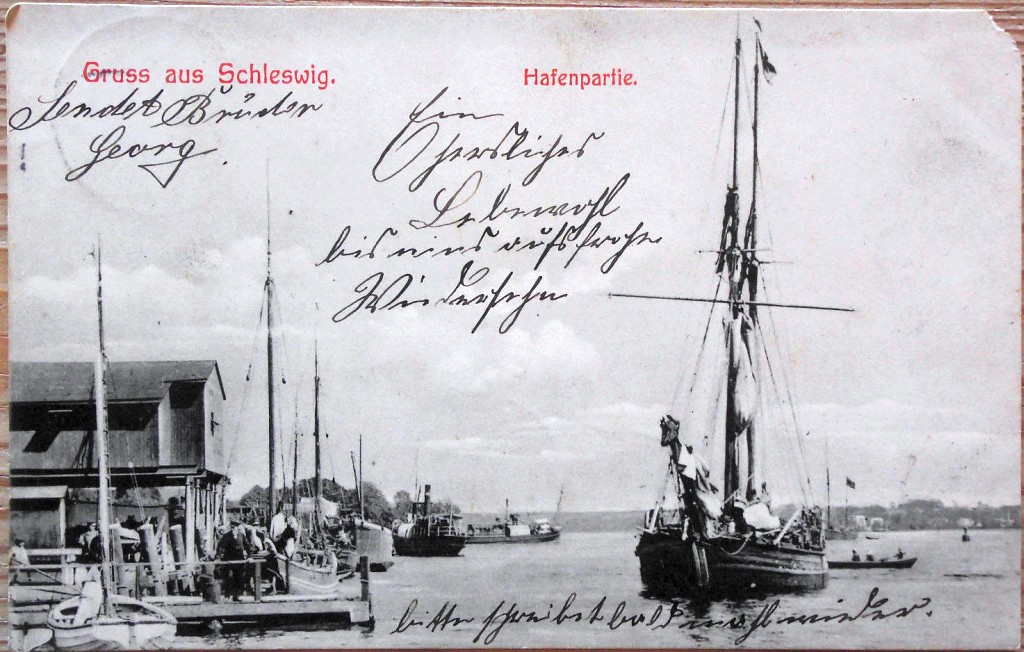 Gruss aus Schleswig.
Hafenpartie.
Sendet Brüder
Georg.
Ein
herzliches
Lebewohl
bis aufs frohe
Wiedersehn
bitte schreibet bald mahl wieder.